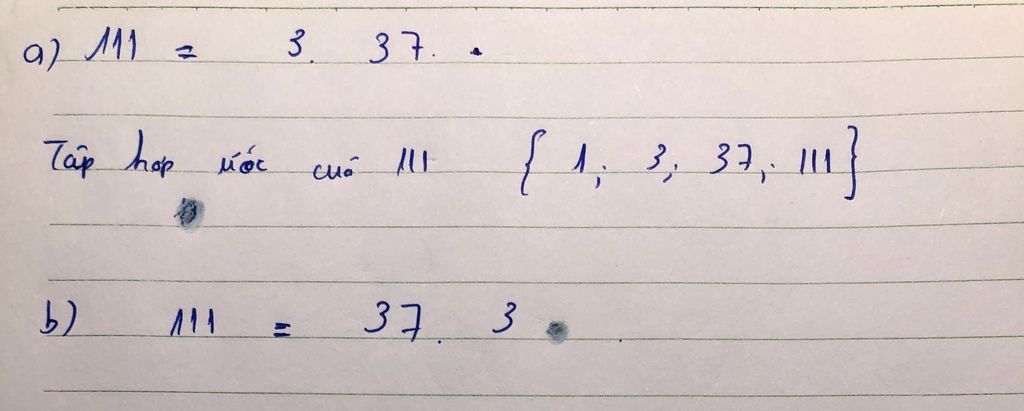 a) 111 = 3. 37.
Tập hợp ước của 111 { 1; 3; 37; 111}
b) 111 = 37. 3